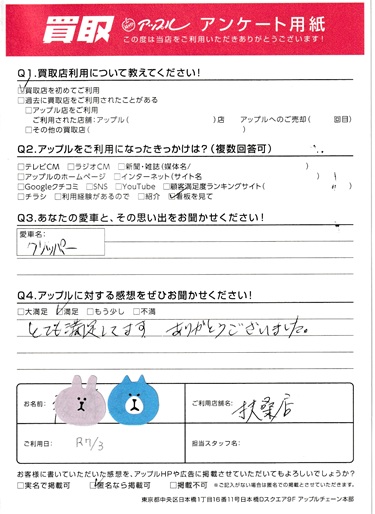 買取 アップル アンケート用紙
この度は当店をご利用いただきありがとうございます!
Q1.買取店利用について教えてください!
☑買取店を初めてご利用
□過去に買取店をご利用されたことがある
□アップル店をご利用
ご利用された店舗:アップル( )店 アップルへのご売却( 回目)
□その他の買取店( )
Q2.アップルをご利用になったきっかけは?(複数回答可)
□テレビCM □ラジオCM □新聞・雑誌(媒体名/ )
□アップルのホームページ □インターネット(サイト名 )
□Googleクチコミ □SNS □YouTube □顧客満足度ランキングサイト( )
□チラシ □利用経験があるので □紹介 ☑看板を見て
Q3.あなたの愛車と、その思い出をお聞かせください!
愛車名:
クリッパー
Q4.アップルに対する感想をぜひお聞かせください!
□大満足 ☑満足 □もう少し □不満
とても満足してます ありがとうございました。
お名前:
ご利用店舗名:
扶桑店
ご利用日: R7/3
担当スタッフ名:
お客様に書いていただいた感想を、アップルHPや広告に掲載させていただいてもよろしいでしょうか?
□実名で掲載可 ☑匿名なら掲載可 □掲載不可 ※ご記入がない場合は匿名での掲載とさせていただきます。
東京都中央区日本橋1丁目16番11号日本橋Dスクエア9F アップルチェーン本部